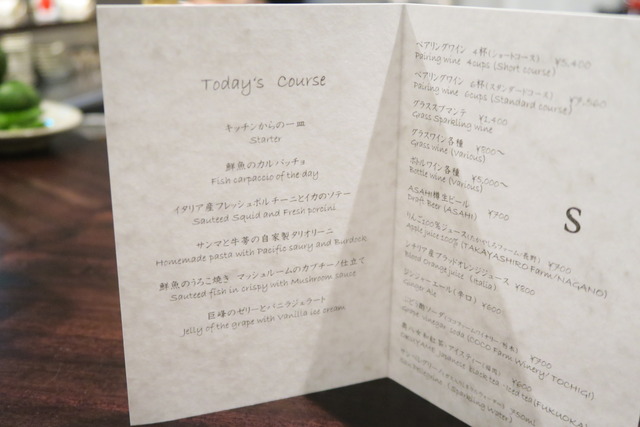 Today's Course
キッチンからの一皿
Starter
鮮魚のカルパッチョ
Fish carpaccio of the day
イタリア産フレッシュポルチーニとイカのソテー
Sauteed Squid and Fresh porcini
サンマと牛蒡の自家製タリオリーニ
Homemade pasta with Pacific saury and Burdock
鮮魚のうろこ焼き マッシュルームのカプチーノ仕立て
Sauteed fish in crispy with Mushroom sauce
巨峰のゼリーとバニラジェラート
Jelly of the grape with Vanilla ice cream
ペアリングワイン 4杯(ショートコース) ¥5,400
Pairing wine 4cups (Short course)
ペアリングワイン 6杯(スタンダードコース) ¥7,560
Pairing wine 6cups (Standard course)
グラススプマンテ ¥1,400
Grass Sparkling wine
グラスワイン各種 ¥800~
Grass wine (Various)
ボトルワイン各種 ¥5,000~
Bottle wine (Various)
ASAHI樽生ビール ¥700
Draft Beer (ASAHI)
りんご100%ジュース
Apple juice 100% (TAKAYASHIRO Farm/NAGANO)
シチリア産ブラッドオレンジジュース ¥800
Blood orange juice (Italia)
ジンジャーエール(辛口) ¥600
Ginger Ale
Grape vinegar soda (COCO Farm Winery/TOCHIGI)
Japanese black tea
S